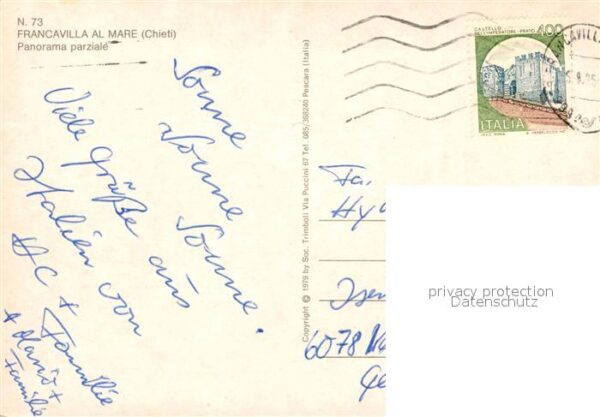 N. 73
FRANCAVILLA AL MARE (Chieti)
Panorama parziale
Sonne
Sonne
Sonne.
Viele Grüße aus
Italien von
AC + Familie
+ Mario +
Familie
Copyright © 1979 by Soc. Trimboli Via Puccini 67 Tel. 085/388240 Pescara (Italia)
CASTELLO
DELL'IMPERATORE - PRATO
400
ITALIA
Fa.
Hy
Isen
6078
privacy protection
Datenschutz